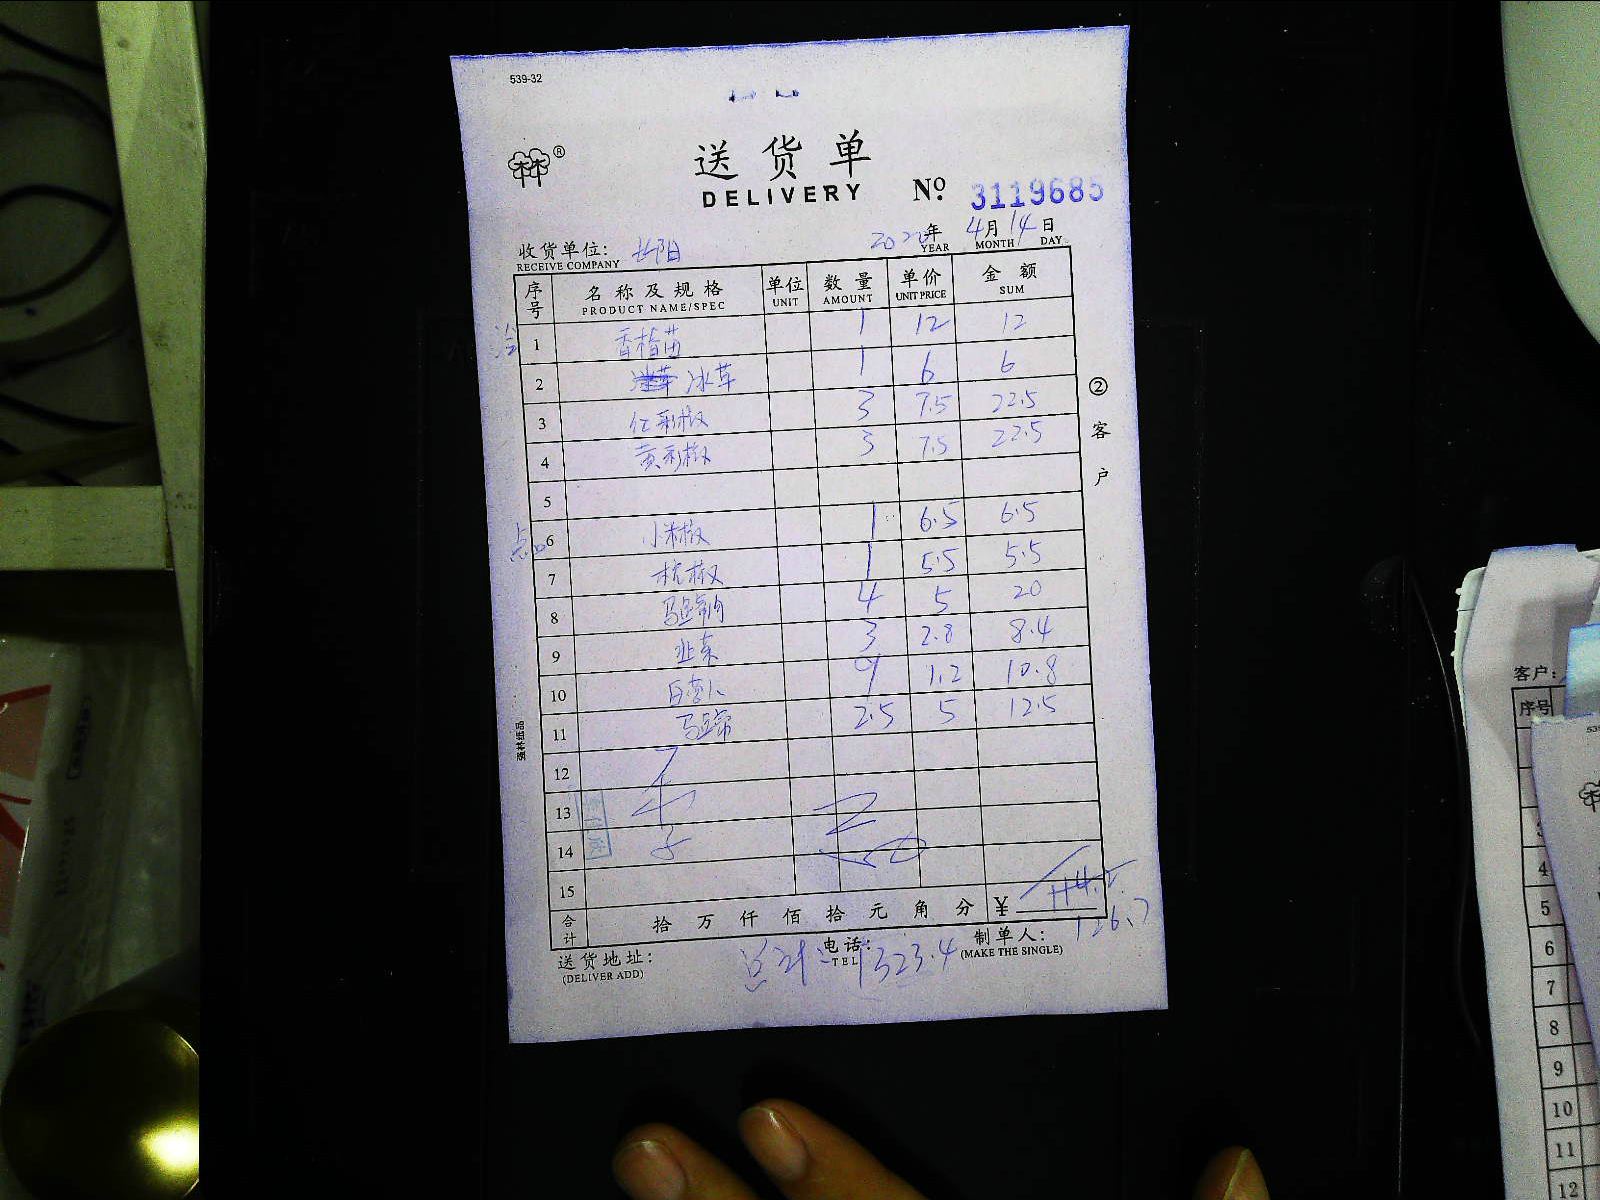 539-32
林®
送货单
DELIVERY No. 3119685
收货单位: 长阳 年 4月14日
RECEIVE COMPANY YEAR MONTH DAY
序号 名称及规格 单位 数量 单价 金额
PRODUCT NAME/SPEC UNIT AMOUNT UNIT PRICE SUM
冷
1 香椿苗 1 12 12
2 冰草 1 6 6
3 红彩椒 3 7.5 22.5
4 黄彩椒 3 7.5 22.5
5
点心
6 小米椒 1 6.5 6.5
7 杭椒 1 5.5 5.5
8 马蹄肉 4 5 20
9 韭菜 3 2.8 8.4
10 白萝卜 9 1.2 10.8
11 马蹄 2.5 5 12.5
12
13
14
15
合计 拾万仟佰拾元角分 ¥ 114.2
126.7
② 客户
强林纸品
送货地址: 电话: 制单人:
(DELIVER ADD) TEL (MAKE THE SINGLE)
总计: 323.4
客户:
序号
4
5
6
7
8
9
10
11
12